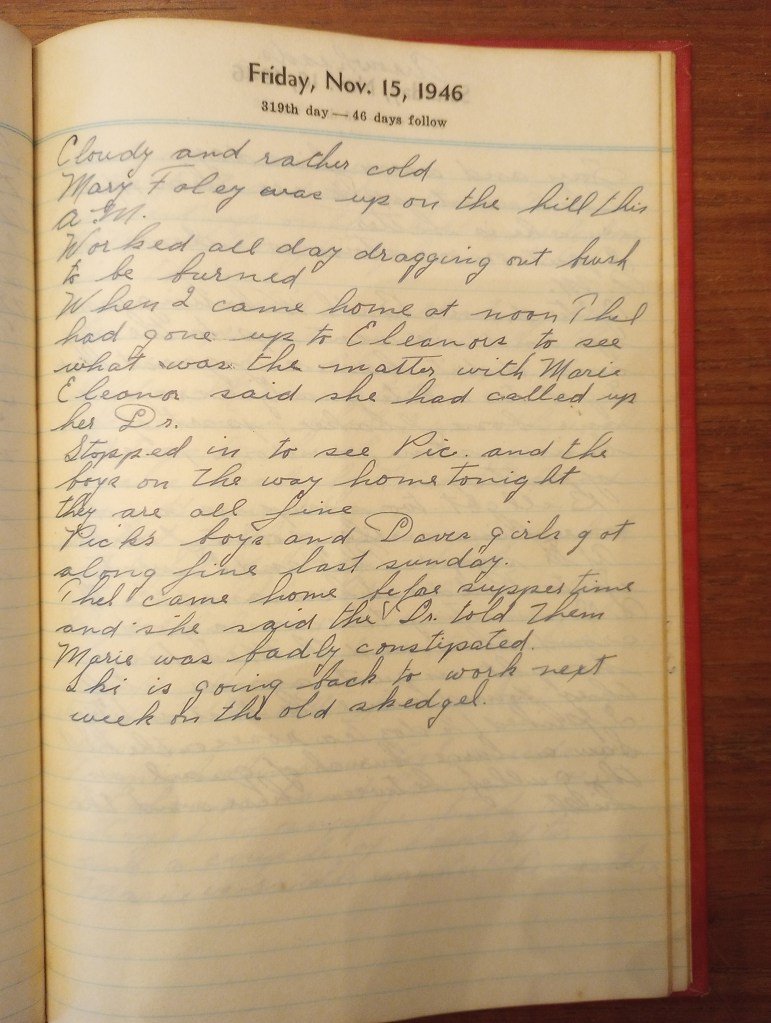 Friday, Nov. 15, 1946
319th day — 46 days follow
Cloudy and rather cold
Mary Foley was up on the hill this
A.M.
Worked all day dragging out brush
to be burned
When I came home at noon Thel
had gone up to Eleanors to see
what was the matter with Marie
Eleanor said she had called up
her Dr.
Stopped in to see Pic. and the
boys on the way home tonight
they are all fine
Picks boys and Daves girls got
along fine last sunday.
Thel came home befoe supper time
and she said the Dr. told them
Marie was badly constipated.
Ski is going back to work next
week on the old skedgel.